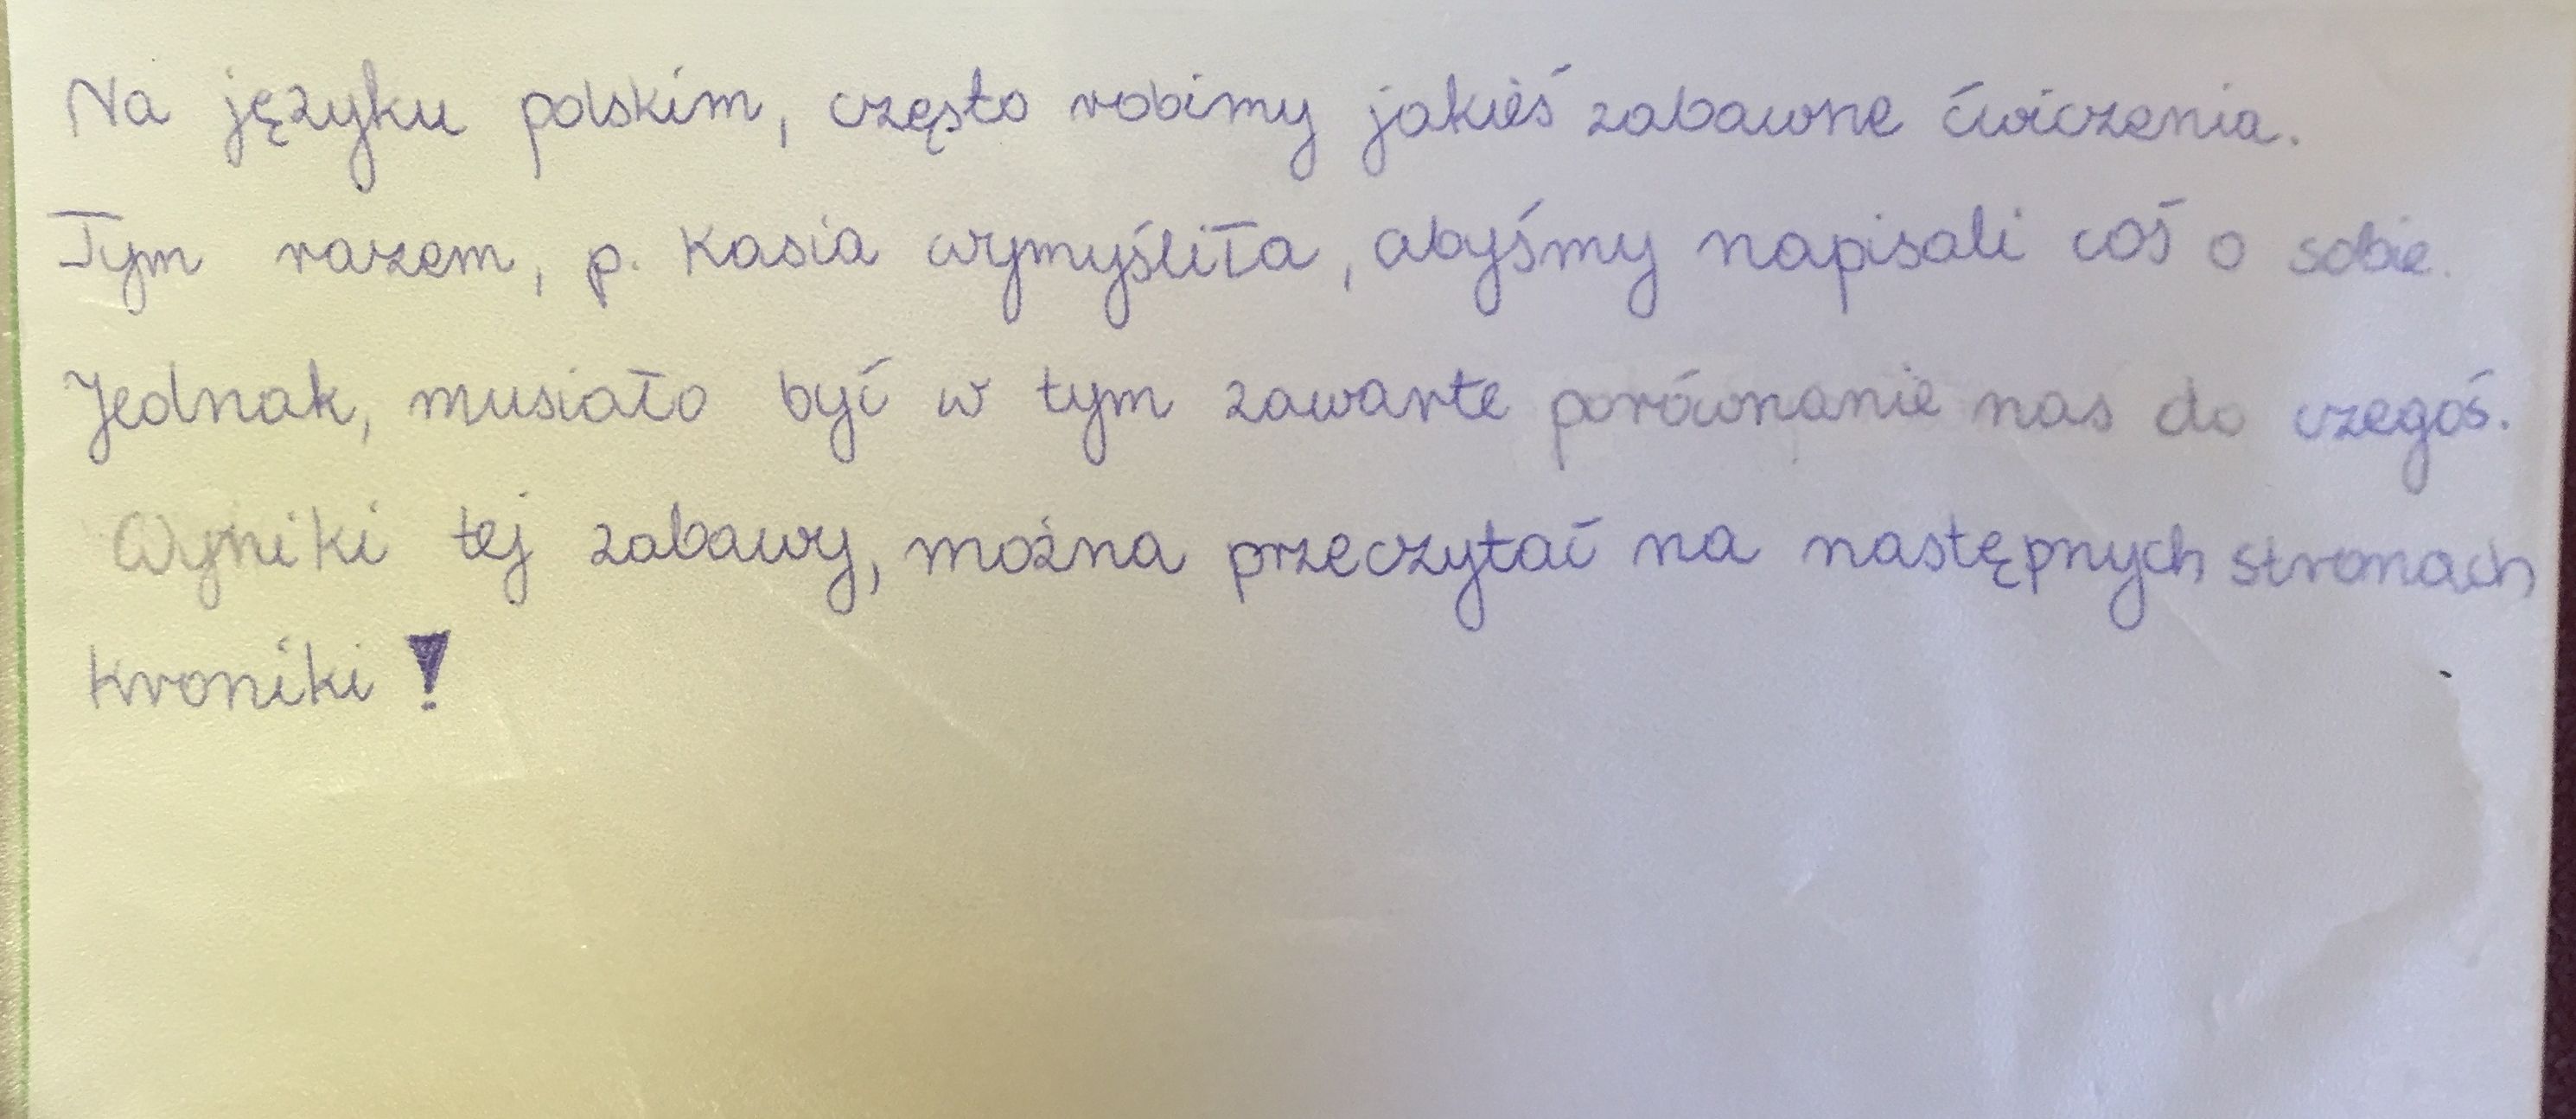 Na języku polskim, często robimy jakieś zabawne ćwiczenia.
Tym razem, p. Kasia wymyśliła, abyśmy napisali coś o sobie.
Jednak, musiało być w tym zawarte porównanie nas do czegoś.
Wyniki tej zabawy, można przeczytać na następnych stronach
kroniki!